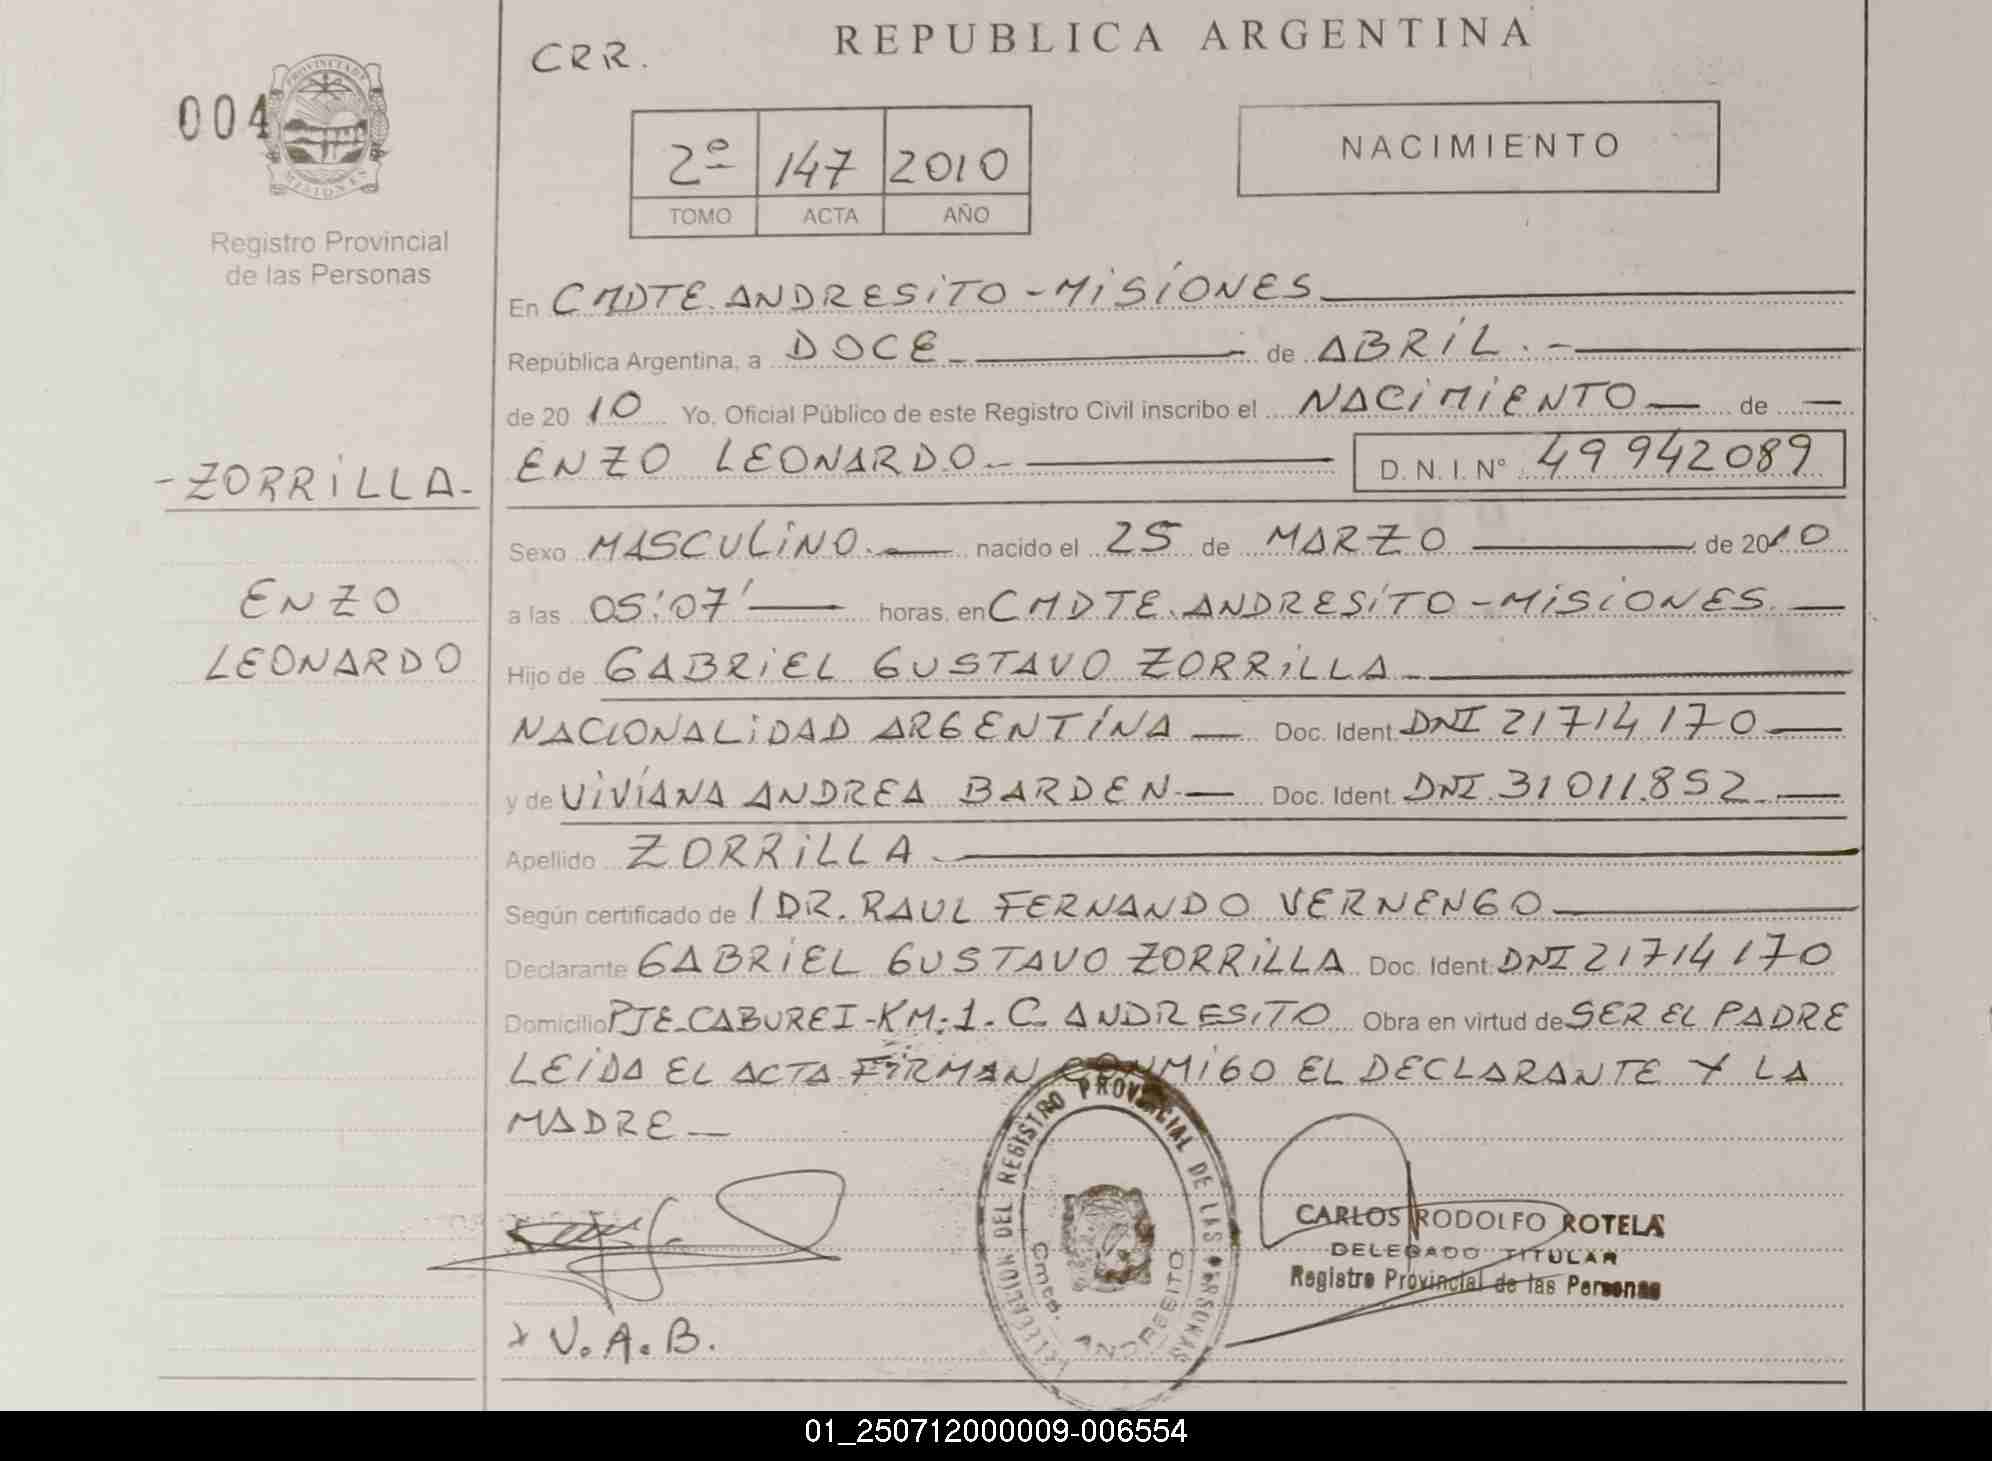 CRR.
REPUBLICA ARGENTINA
004
PROVINCIA DE
MISIONES
Registro Provincial
de las Personas
2º 147 2010
TOMO ACTA AÑO
NACIMIENTO
En CMDTE. ANDRESITO - MISIONES
República Argentina, a DOCE de ABRIL. -
de 20 10 Yo, Oficial Público de este Registro Civil inscribo el NACIMIENTO de
ENZO LEONARDO D.N.I. Nº 49942089
- ZORRILLA -
ENZO
LEONARDO
Sexo MASCULINO. nacido el 25 de MARZO de 2010
a las 05:07' horas, en CMDTE. ANDRESITO - MISIONES.
Hijo de GABRIEL GUSTAVO ZORRILLA
NACIONALIDAD ARGENTINA Doc. Ident. DNI 21714170
y de VIVIANA ANDREA BARDEN Doc. Ident. DNI. 31011.852
Apellido ZORRILLA
Según certificado de / DR. RAUL FERNANDO VERNENGO
Declarante GABRIEL GUSTAVO ZORRILLA Doc. Ident. DNI 21714170
Domicilio PJE. CABUREI - KM. 1. C. ANDRESITO Obra en virtud de SER EL PADRE
LEIDA EL ACTA FIRMAN CONMIGO EL DECLARANTE Y LA
MADRE
DEL REGISTRO PROVINCIAL DE LAS PERSONAS
Cmte. ANDRESITO
CARLOS RODOLFO ROTELA
DELEGADO TITULAR
Registro Provincial de las Personas
x V.A.B.
01_250712000009-006554